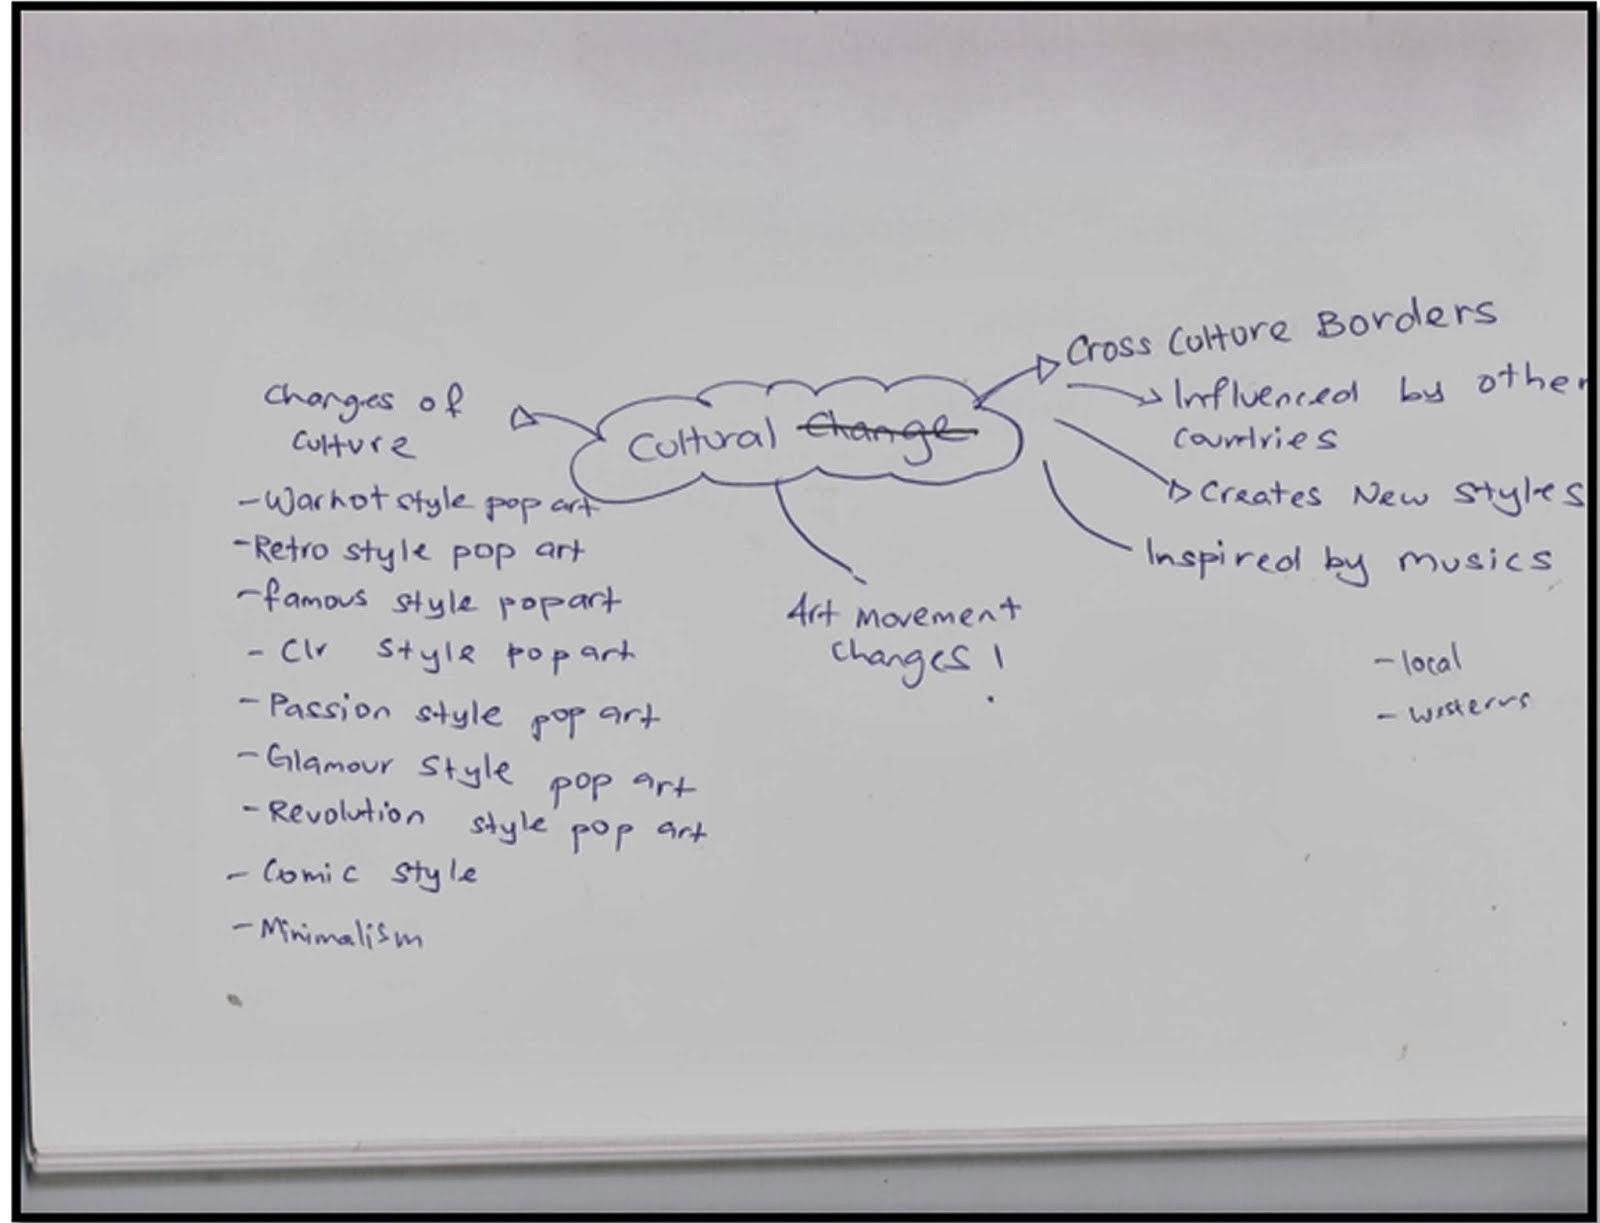 Cultural Change
Changes of
Culture
- Warhot style pop art
- Retro style pop art
- famous style pop art
- Clr style pop art
- Passion style pop art
- Glamour style pop art
- Revolution style pop art
- Comic style
- Minimalism
Art movement
changes !
Cross Culture Borders
Influenced by other
Countries
Creates New Styles
Inspired by musics
- local
- westerns